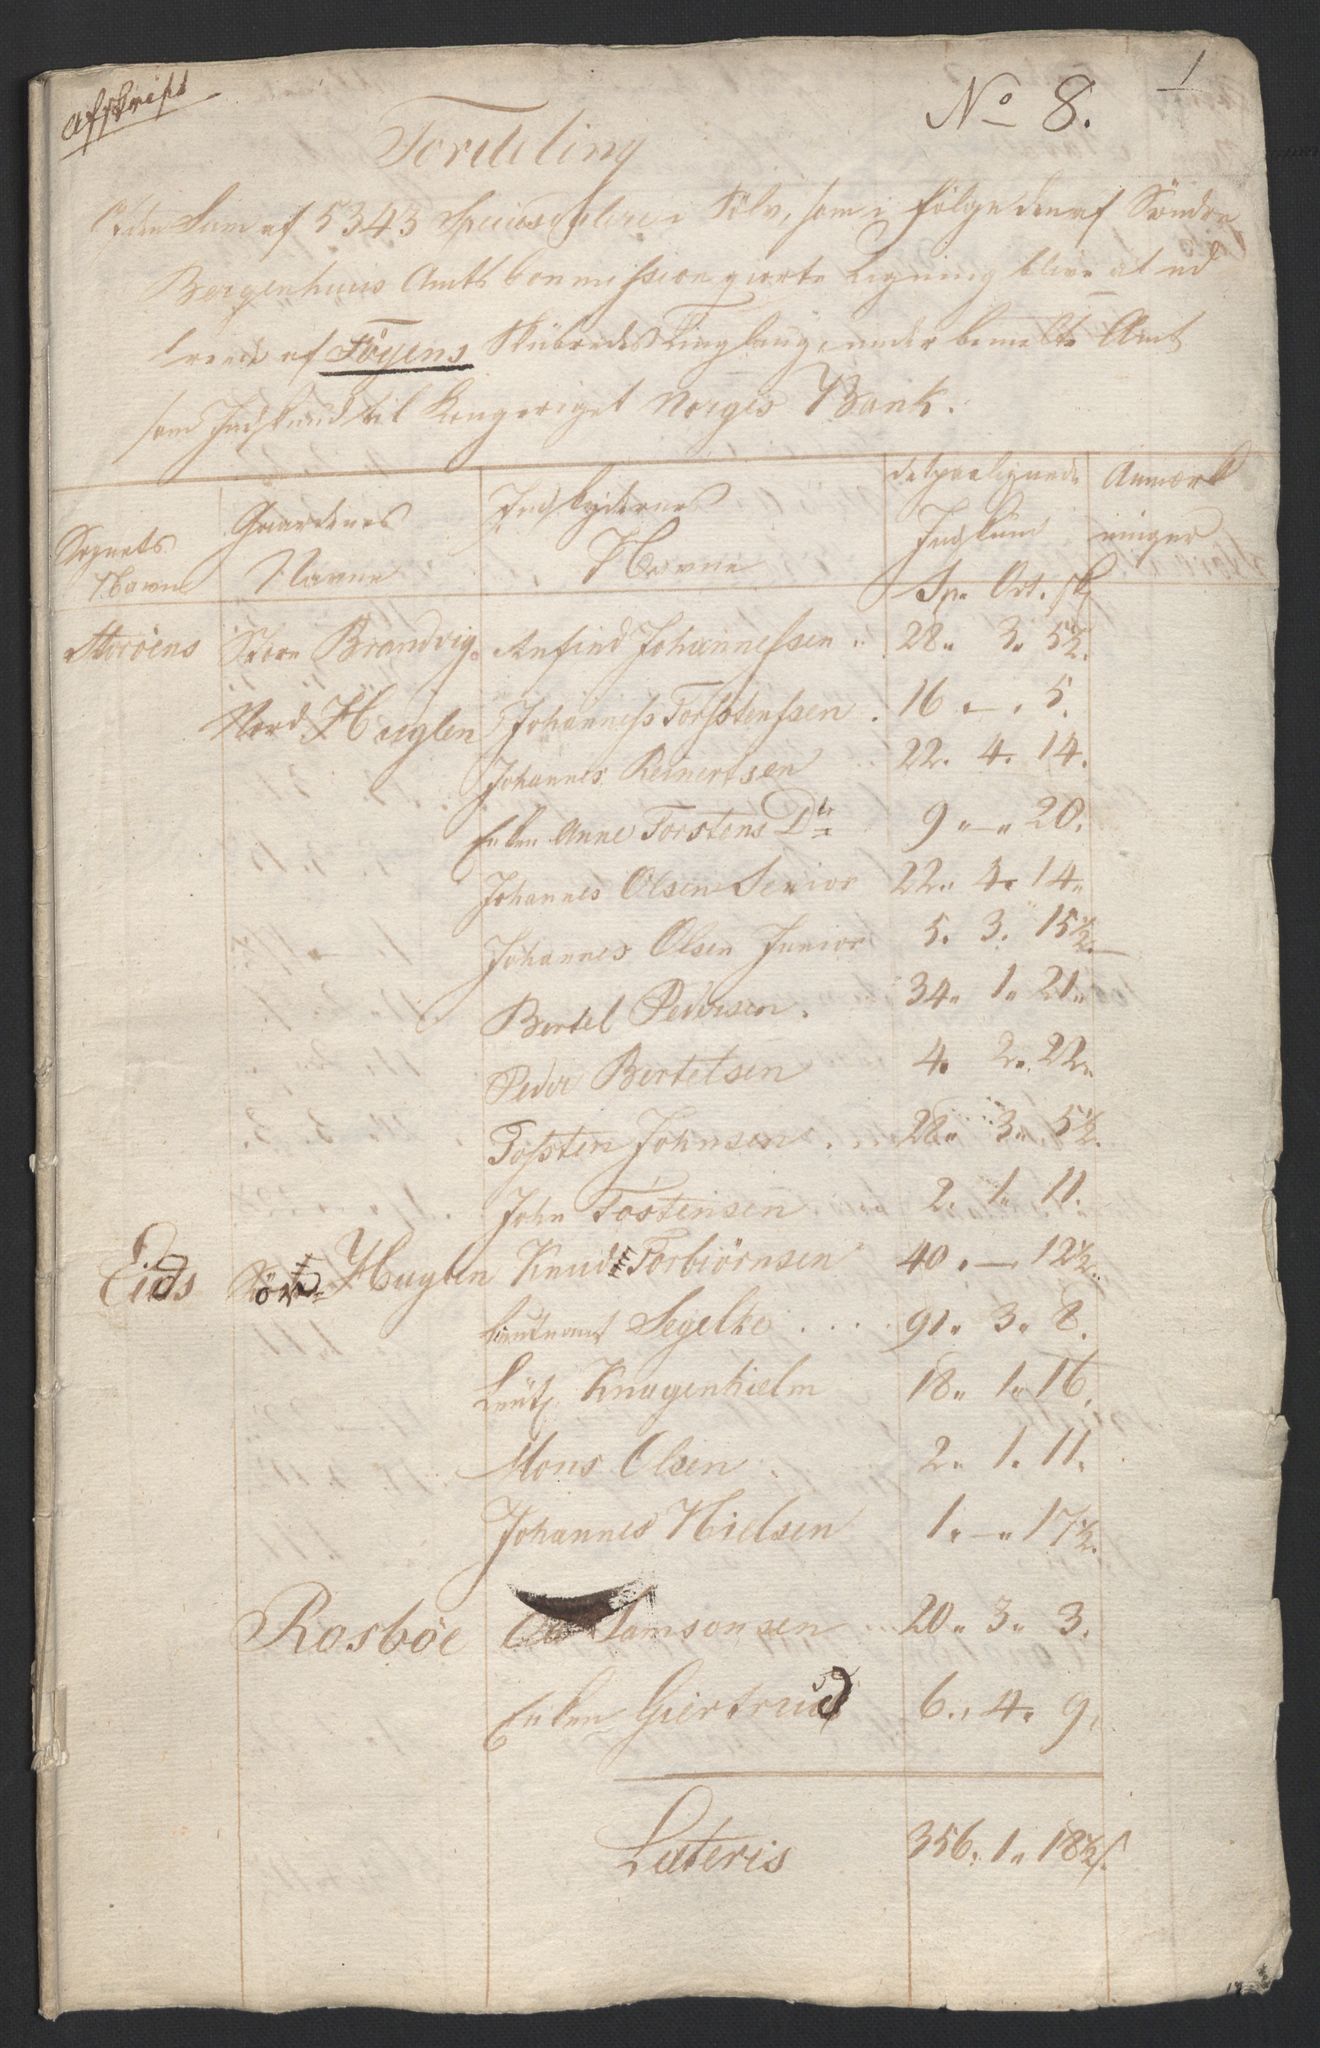 Afskrift
No 8.
1
Fordeling
Af den Sum af 5343 Speciesdalere i Sölv, som i Følge den af Söndre
Bergenhuus Amts Commission giorte Ligning bliver at ud
af Föyens Skibredes Tinglaug, under bemelte Amt
som Indskud til Kongeriget Norges Bank.
Sognets Navn
Gaardenes Navne
Indskydernes Navne
det paalignede Indskud
Anmærkninger
Sp. Ort. ſk
Storöens Store Brandvig Anfind Johannesſen 28 " 3 " 5½.
Nord Huglen Johannes Torstensſen . 16 . — . 5.
Johannes Reinertsen 22. 4. 14.
Enken Anne Torstens Dtr 9 " — " 20.
Johannes Olsen Senior 22 " 4. 14 "
Johannes Olsen Junior 5. 3. 15½.
Bertel Pedersen . 34 " 1 " 21 "
Peder Bertelsen 4. 2 " 22 "
Tosten Johnsen . . 28 " 3 " 5½.
John Tostensen 2. 1 " 11.
Eids Sör Huglen Knud Torbiörnsen 40 . — 12½.
Lieutnant Segelke . . . . 91 " 3 " 8.
Leut. Knagenhielm 18 " 1 " 16.
Mons Olsen 2 " 1. 11.
Johannes Nielsen 1. — " 17½.
Rosböe Ole Samsonsen . . 20 " 3 " 3.
Enken Giertrud 6. 4. 9.
Lateris 356. 1 " 18½.